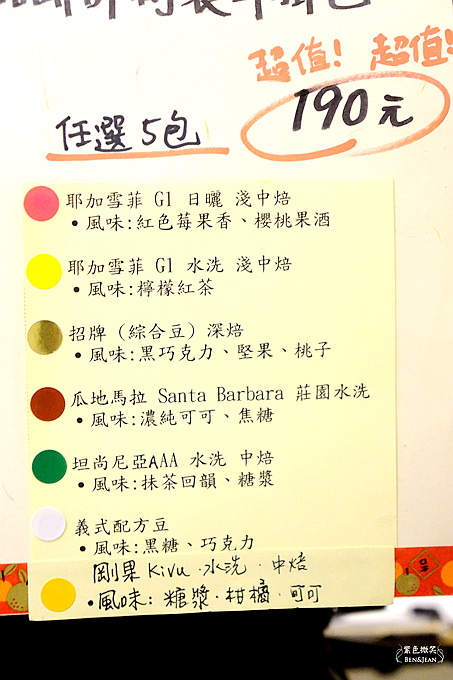 超值! 超值!
任選5包 190元
耶加雪菲 G1 日曬 淺中焙
•風味:紅色莓果香、櫻桃果酒
耶加雪菲 G1 水洗 淺中焙
•風味:檸檬紅茶
招牌 (綜合豆) 深焙
•風味:黑巧克力、堅果、桃子
瓜地馬拉 Santa Barbara 莊園水洗
•風味:濃純可可、焦糖
坦尚尼亞AAA 水洗 中焙
•風味:抹茶回韻、糖漿
義式配方豆
•風味:黑糖、巧克力
剛果 Kivu·水洗·中焙
•風味: 糖漿·柑橘·可可
紫色微笑
BEN&JEAN